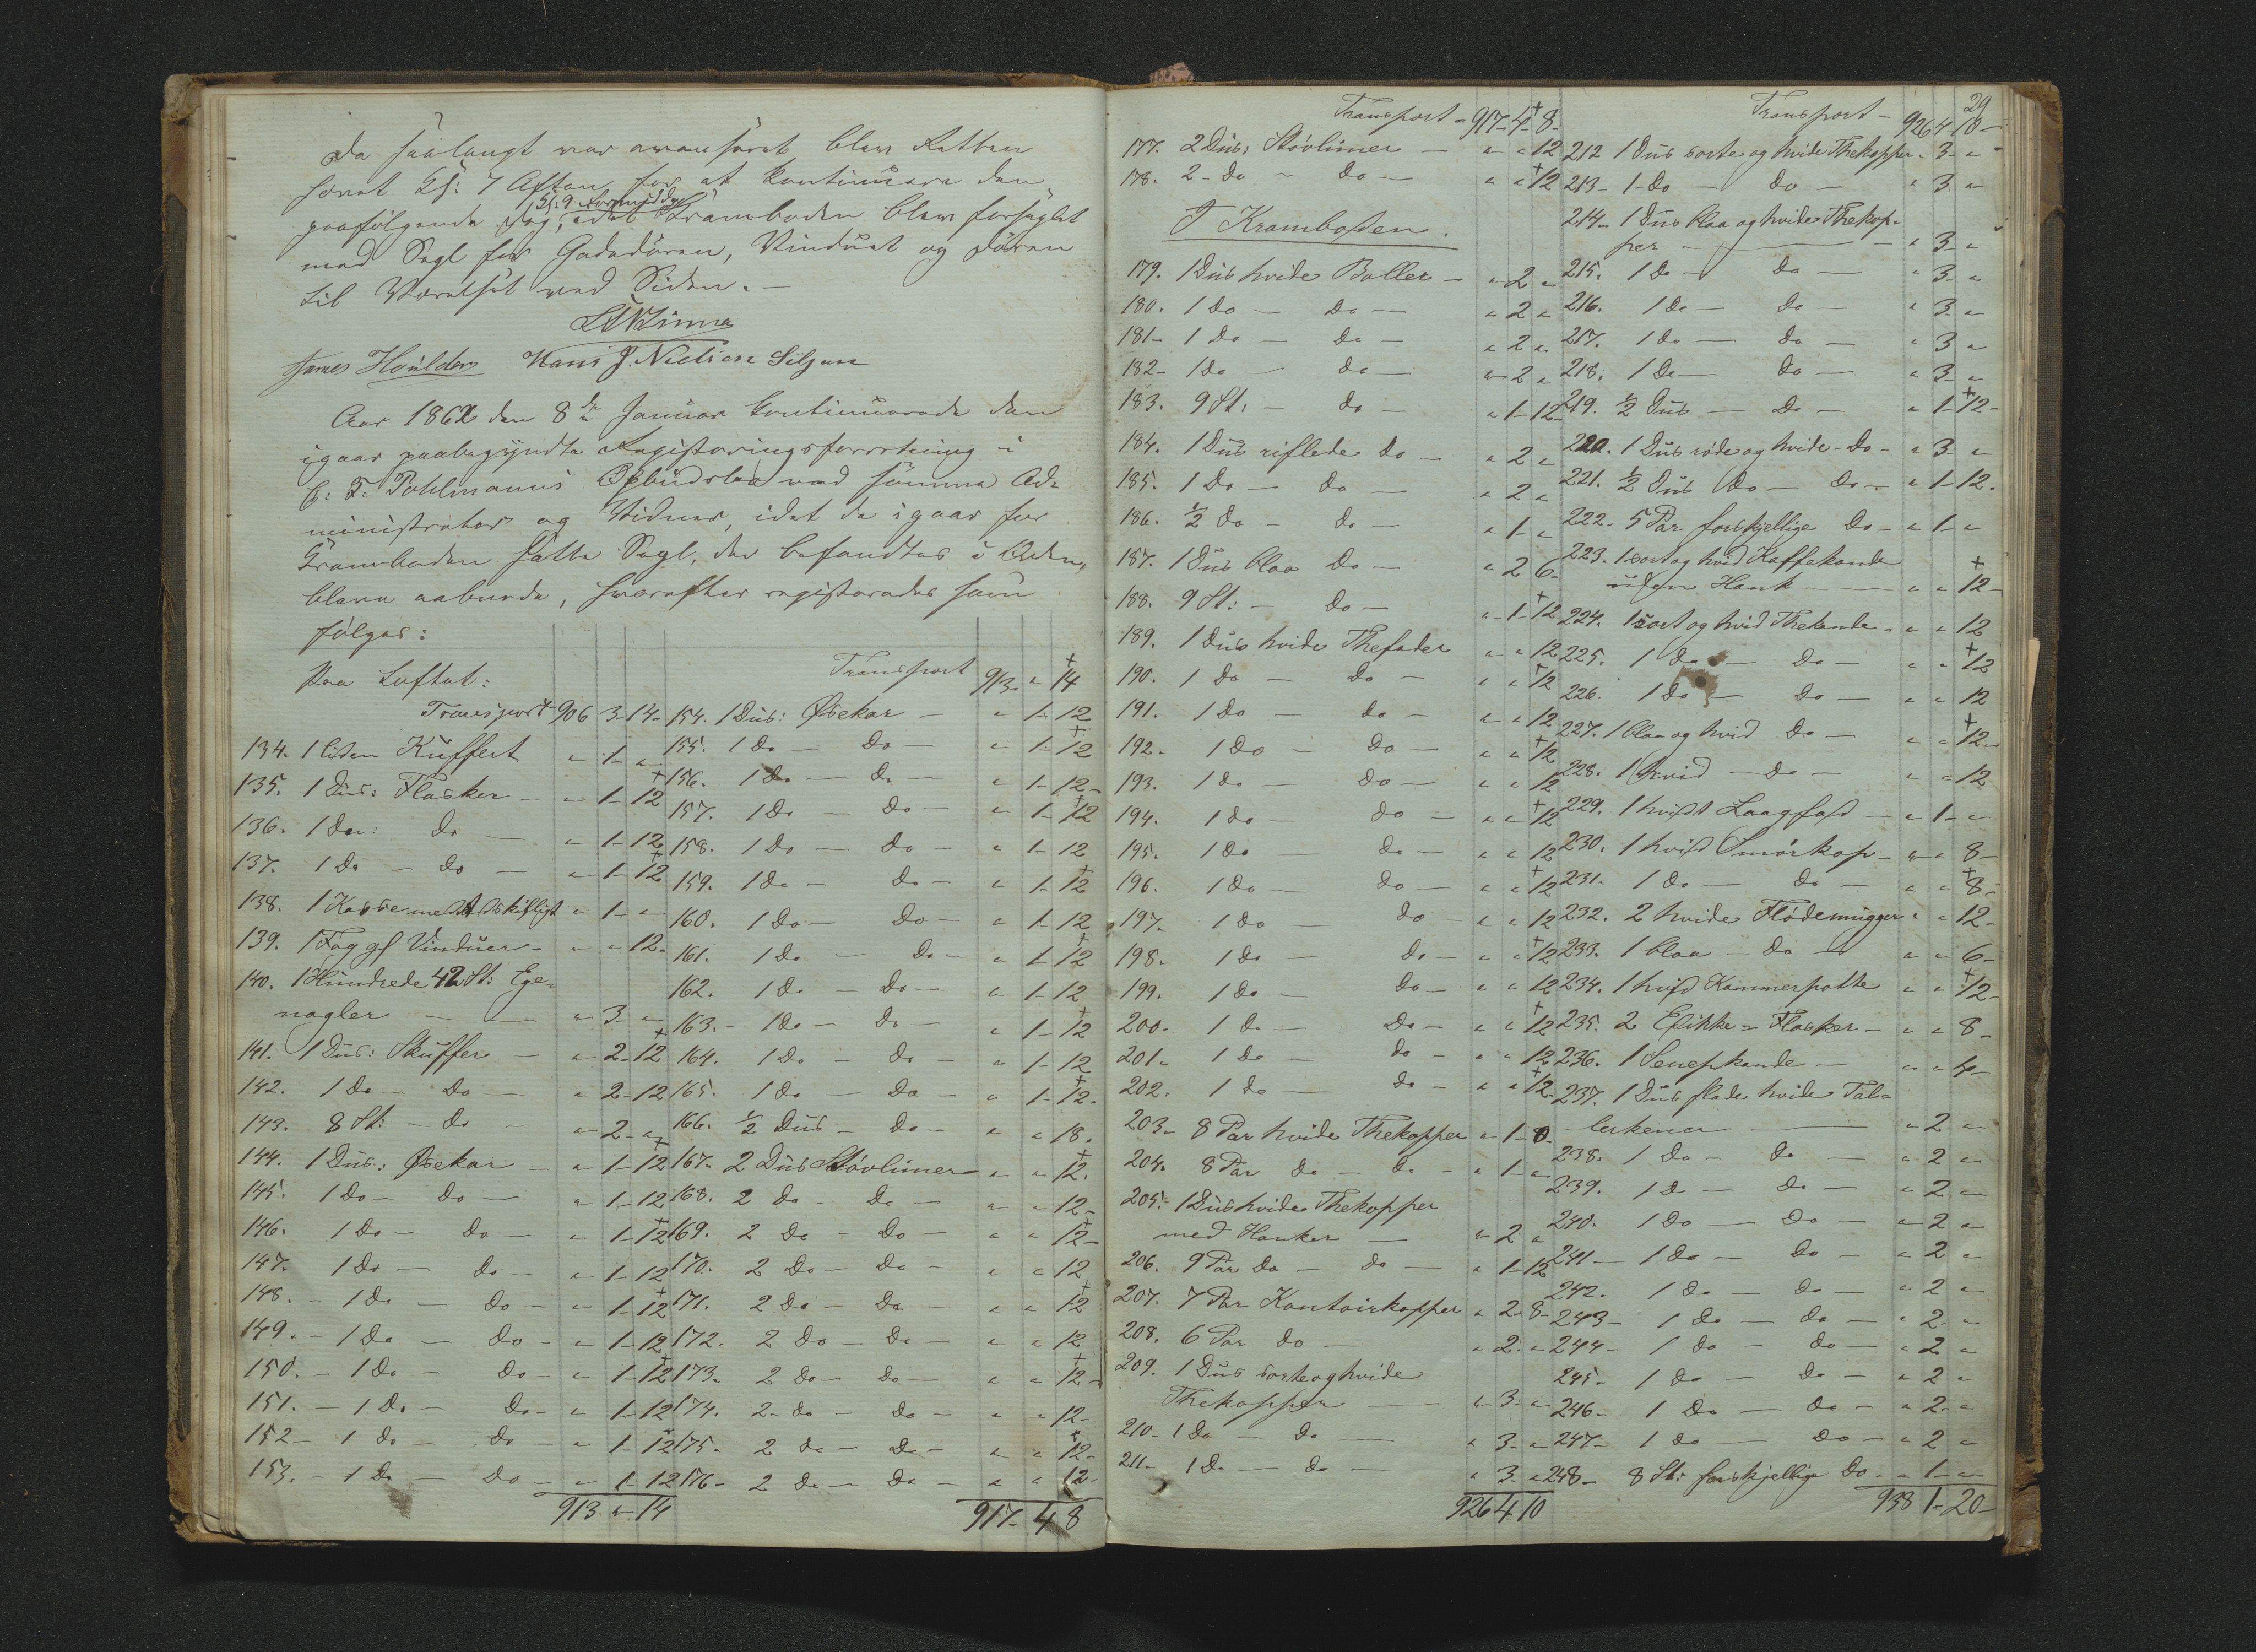 Da saalangt var avanseret blev Retten
hævet Kl: 7 Aften for at kontinuere den
Kl: 9 Formiddag
paafølgende Dag, idet Kramboden blev forseglet
med Segl for Gadedøren, Vinduet og Døren
til Værelset ved Siden. —
James Houlder Hans J. Nielsen Siljan
Aar 1862 den 8de Januar kontinuerede den
igaar paabegyndte Registeringsforretning i
C: F. Pohlmanns Opbudsbo ved samme Ad-
ministrator og Vidner, idet de igaar for
Kramboden satte Segl, der befandtes i Orden,
bleve aabnede, hvorefter registeredes som
følger:
Paa Loftet:
Transport 906 3 14
134. 1 liden Kuffert — " 1 "
135. 1 Dus: Flasker — " 1 12
136. 1 Do: do — " 1 12
137. 1 Do — do — " 1 12
138. 1 Kasse med Adskilligt " 1 "
139. 1 Fag gl Vinduer — " " 12
140. 1 Hundrede 42 St: Ege-
nagler — " 3 "
141. 1 Dus: Skuffer — " 2 12
142. 1 Do — do — " 2 12
143. 8 St: — do — " 2 "
144. 1 Dus: Øsekar — " 1 12
145. 1 Do — do — " 1 12
146. 1 do — do — " 1 12
147. 1 Do — do — " 1 12
148. 1 Do — do — " 1 12
149. 1 Do — do — " 1 12
150. 1 Do — do — " 1 12
151. 1 Do — do — " 1 12
152. 1 do — do — " 1 12
153. 1 Do — do — " 1 12
913 " 14
Transport 913 " 14
154. 1 Dus: Øsekar — " 1 12
155. 1 do — do — " 1 12
156. 1 Do — do — " 1 12
157. 1 Do — do — " 1 12
158. 1 do — do — " 1 12
159. 1 do — do — " 1 12
160. 1 do — do — " 1 12
161. 1 do — do — " 1 12
162. 1 do — do — " 1 12
163. 1 do — do — " 1 12
164. 1 do — do — " 1 12
165. 1 do — do — " 1 12
166. ½ Dus — do — " " 18
167. 2 Dus Støvlimer " " 12
168. 2 do — do — " " 12
169. 2 do — do — " " 12
170. 2 do — do — " " 12
171. 2 do — do — " " 12
172. 2 do — do — " " 12
173. 2 do — do — " " 12
174. 2 do — do — " " 12
175. 2 do — do — " " 12
176. 2 do — do — " " 12
917 4 8
Transport 917 4 8
177. 2 Dus: Støvlimer — " " 12
178. 2 Do — do — " " 12
I Kramboden.
179. 1 Dus hvide Boller — " 2 "
180. 1 do — do — " 2 "
181. 1 do — do — " 2 "
182. 1 do — do — " 2 "
183. 9 St: — do — " 1 12
184. 1 Dus riflede do — " 2 "
185. 1 Do — do — " 2 "
186. ½ do — do — " 1 "
187. 1 Dus blaa do — " 2 6
188. 9 St: — do — " 1 12
189. 1 Dus hvide Thefader " " 12
190. 1 do — do — " " 12
191. 1 do — do — " " 12
192. 1 do — do — " " 12
193. 1 do — do — " " 12
194. 1 do — do — " " 12
195. 1 do — do — " " 12
196. 1 do — do — " " 12
197. 1 do — do — " " 12
198. 1 do — do — " " 12
199. 1 do — do — " " 12
200. 1 do — do — " " 12
201. 1 do — do — " " 12
202. 1 do — do — " " 12
203. 8 Par hvide Thekopper " 1 8
204. 8 Par do — do — " 1 "
205. 1 Dus hvide Thekopper
med Hanker — " 2 "
206. 9 Par do — do — " 1 12
207. 7 Par Kontoirkopper " 2 8
208. 6 Par do — " 2 "
209. 1 Dus sorte og hvide
Thekopper — " 3 "
210. 1 Do — do — " 3 "
211. 1 Do — do — " 3 "
926 4 10
29
Transport — 926 4 10
212 1 Dus sorte og hvide Thekopper " 3 "
213. 1 Do — do — " 3 "
214. 1 Dus blaa og hvide Thekop-
per — " 3 "
215. 1 do — do — " 3 "
216. 1 do — do — " 3 "
217. 1 do — do — " 3 "
218. 1 do — do — " 3 "
219. ½ Dus — do — " 1 12
220. 1 Dus røde og hvide do — " 3 "
221. ½ Dus do — do — " 1 12
222. 5 Par forskjellige do — " 1 "
223. 1 sort og hvid Kaffekande
uden Hank — " " 12
224. 1 sort og hvid Thekande — " " 12
225. 1 do — do — " " 12
226. 1 do — do — " " 12
227. 1 blaa og hvid do — " " 12
228. 1 hvid — do — " " 12
229. 1 hvidt Laagfad — " 1 "
230. 1 hvid Smørkop — " " 8
231. 1 do — do — " " 8
232. 2 hvide Flødemugger " " 12
233. 1 blaa — do — " " 6
234. 1 hvid Kammerpotte " " 12
235. 2 Edikke-Flasker — " " 8
236. 1 Senepkande — " " 4
237. 1 Dus flade hvide Tal-
lerkener — " 2 "
238. 1 do — do — " 2 "
239. 1 do — do — " 2 "
240. 1 do — do — " 2 "
241. 1 do — do — " 2 "
242. 1 do — do — " 2 "
243. 1 do — do — " 2 "
244. 1 do — do — " 2 "
245. 1 do — do — " 2 "
246. 1 do — do — " 2 "
247. 1 do — do — " 2 "
248. 8 St: forskjellige do — " 1 "
938 1 20